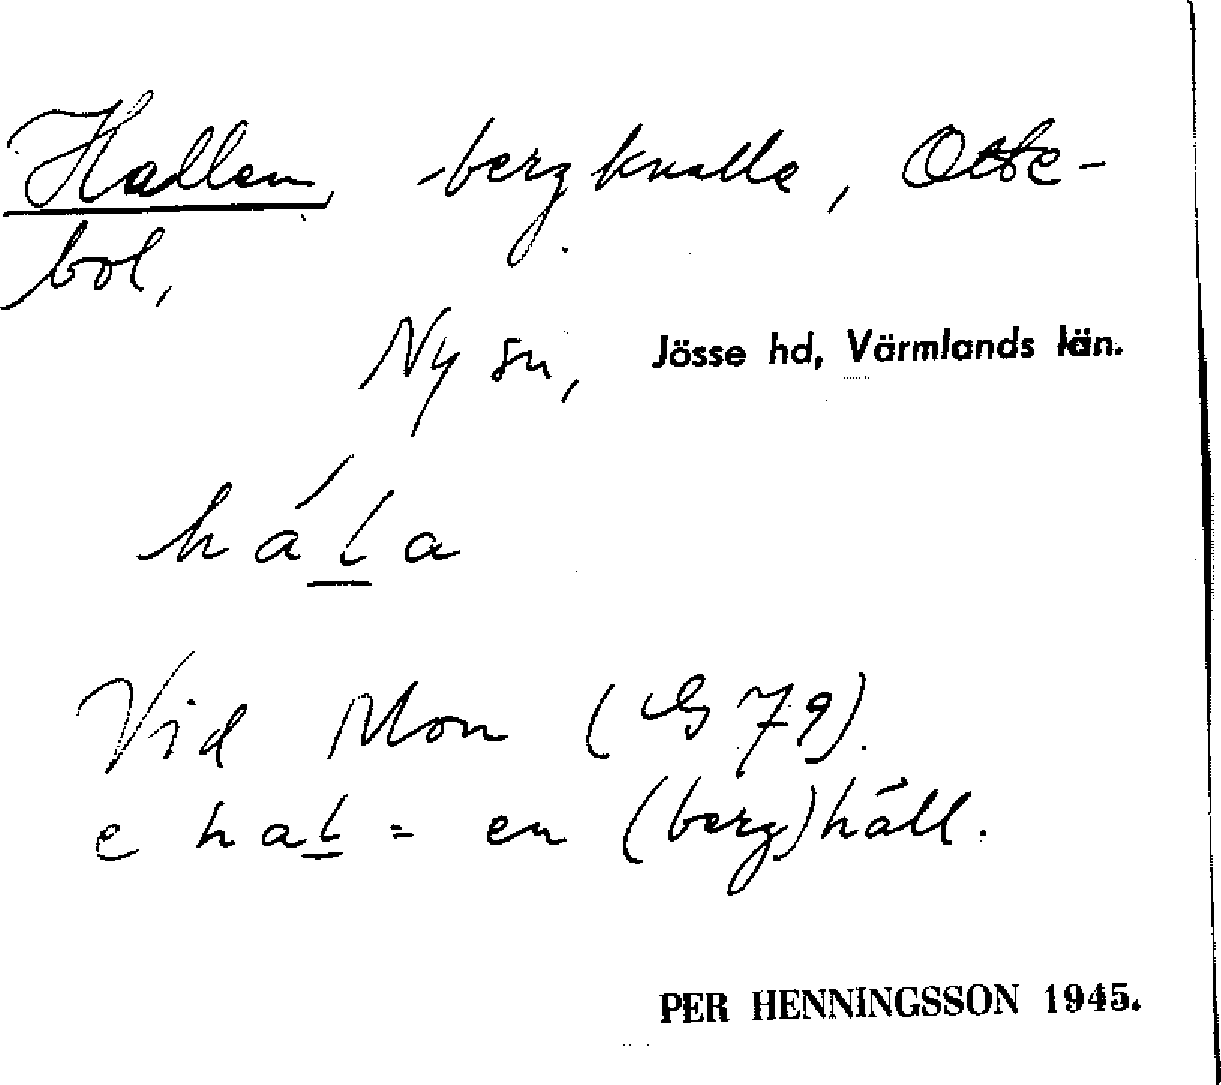 Hallen, bergknalle, Otte-
bol,
Ny sn, Jösse hd, Värmlands län.
háḻa
Vid Mon (G 79).
e haḻ = en (berg)häll.
PER HENNINGSSON 1945.